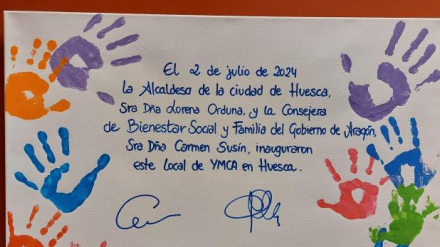 El 2 de julio de 2024
la Alcaldesa de la ciudad de Huesca,
Sra Dña Lorena Orduna, y la Consejera
de Bienestar Social y Familia del Gobierno de Aragón,
Sra Dña Carmen Susín, inauguraron
este Local de YMCA en Huesca.